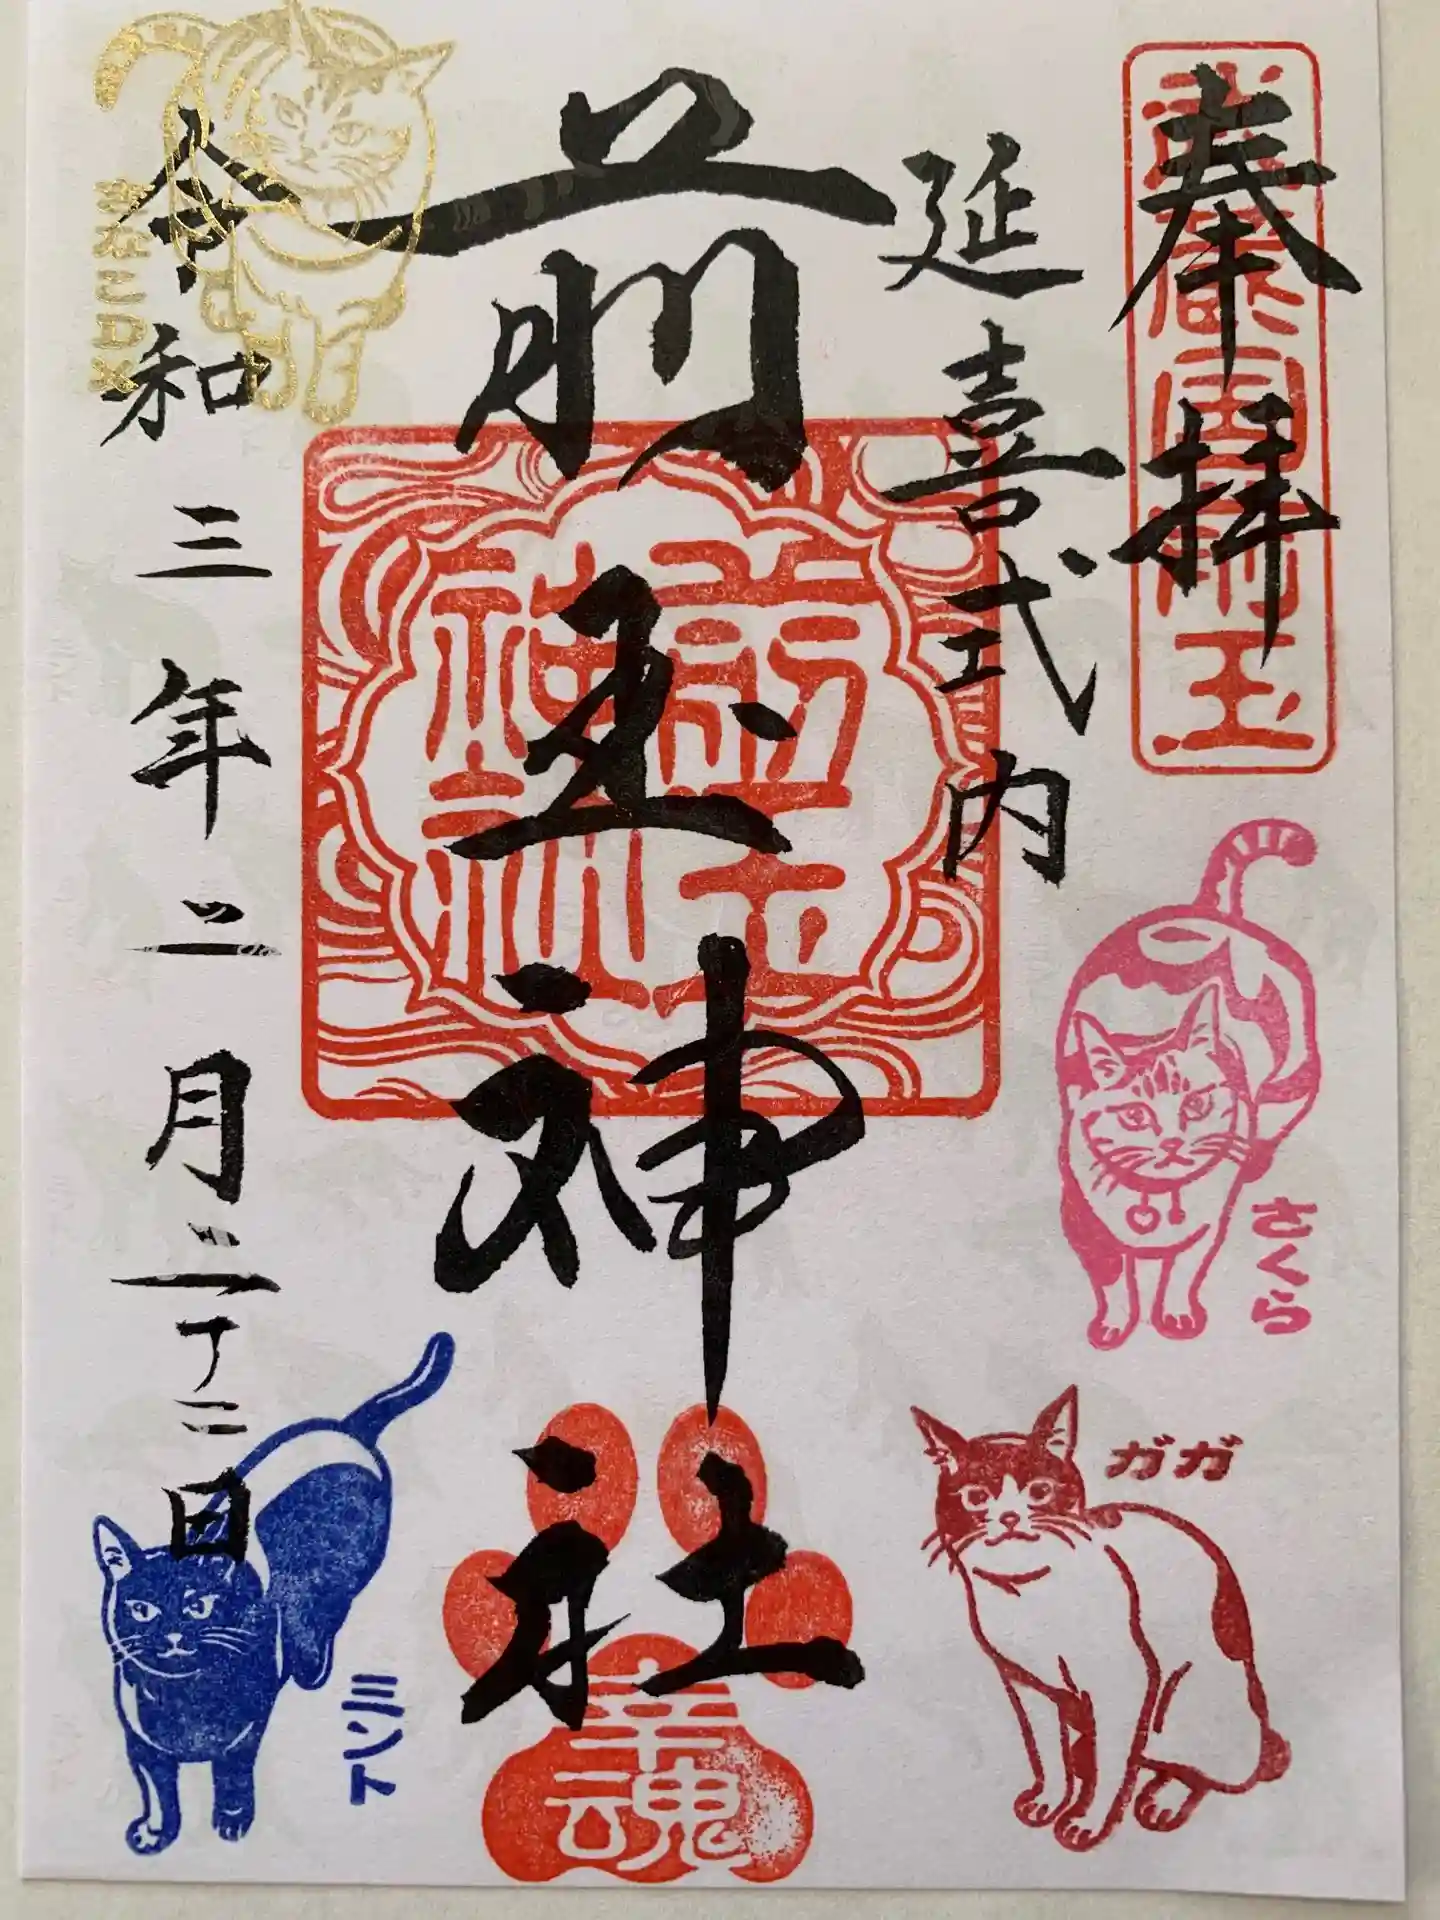 奉拝
武蔵国前玉
延喜式内
前玉神社
前玉神社
令和三年二月二十二日
きなこDX
さくら
ガガ
ミント
幸魂